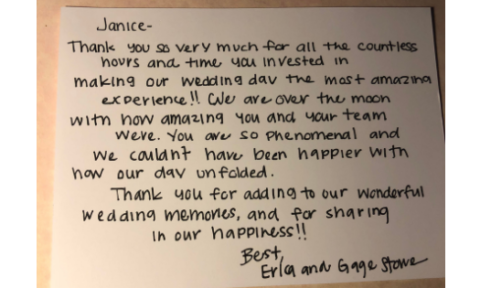 Janice-
Thank you so very much for all the countless
hours and time you invested in
making our wedding day the most amazing
experience!! We are over the moon
with how amazing you and your team
were. You are so phenomenal and
we couldn't have been happier with
how our day unfolded.
Thank you for adding to our wonderful
wedding memories, and for sharing
in our happiness!!
Best,
and Gage Stowe